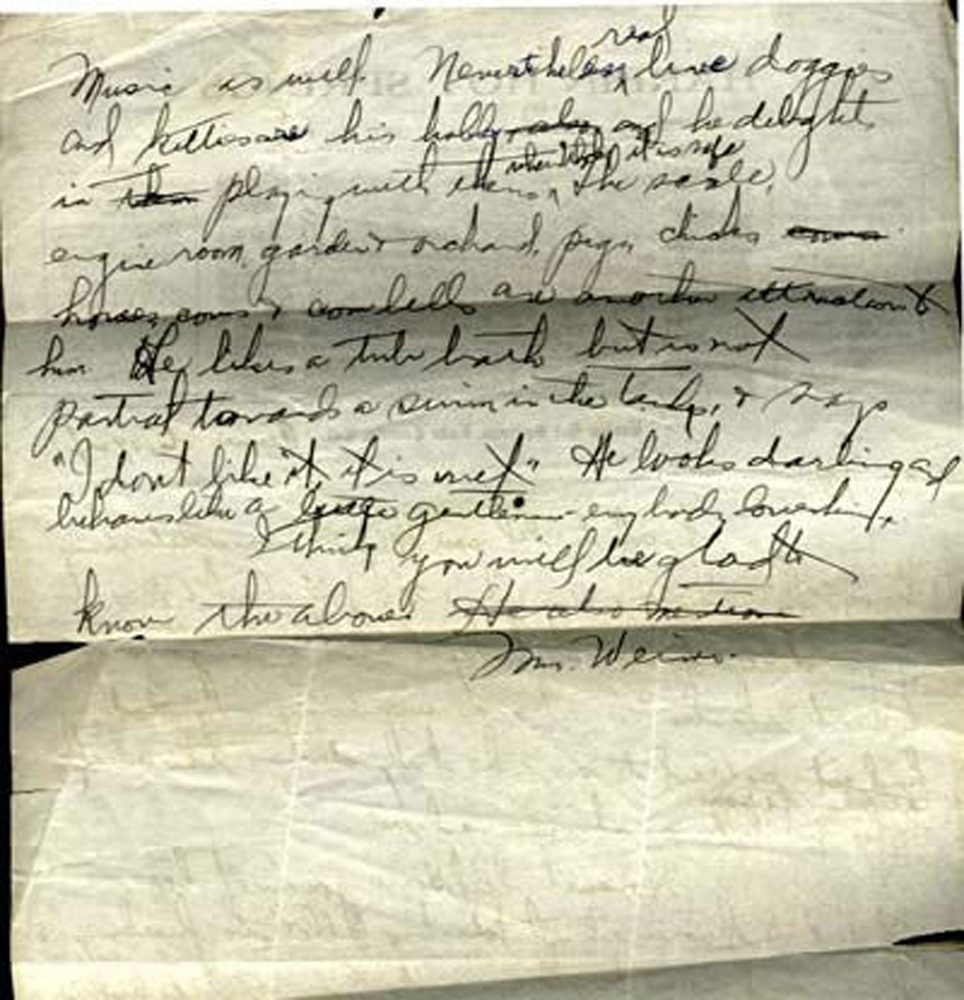 Music is well. Nevertheless real live doggies
and kitties are his hobby, and he delights
in playing with them, when it is safe. The scale,
engine room, garden & orchard, pigs, chicks
horses, cows & cow bells are another attraction to
him. He likes a tub bath but is not
partial towards a swim in the tank, & says
"I dont like it, it is wet." He looks darling and
behaves like a gentleman - everybody loves him.
I think you will be glad to
know the above. He also
Mrs.